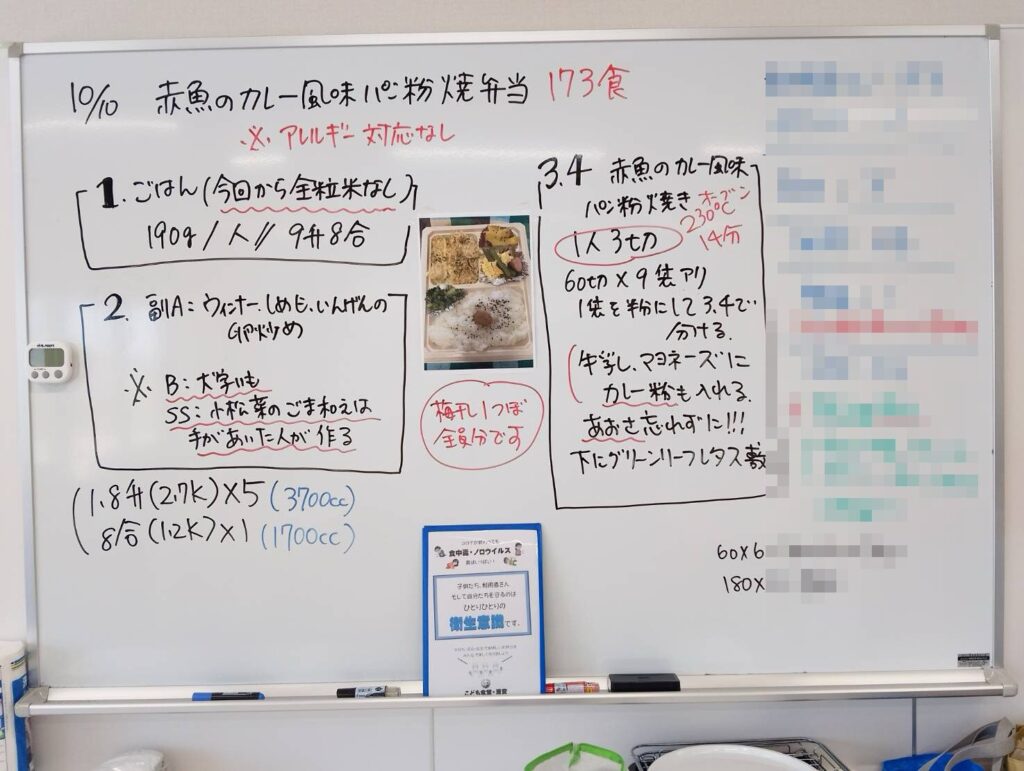 10/10 赤魚のカレー風味パン粉焼弁当 173食
※アレルギー対応なし
1. ごはん(今回から全粒米なし)
190g/人 // 9升8合
2. 副A:ウィンナー、しめじ、いんげんの
卵炒め
※ B:大学いも
SS:小松菜のごま和えは
手があいた人が作る
(1.8升(2.7K)×5 (3700cc)
8合(1.2K)×1 (1700cc)
梅干し1つぼ
全員分です
3.4 赤魚のカレー風味
パン粉焼き オーブン
230℃
14分
1人3切
60切×9袋アリ
1袋を粉にして3.4で
分ける.
マヨネーズに
カレー粉も入れる.
あおさ忘れずに!!!
下にグリーンリーフレタス敷
60×6
180×
食中毒・ノロウイルス
子供たち、利用者さん
そして自分たちを守るのは
ひとりひとりの
衛生意識です。
こども食堂・